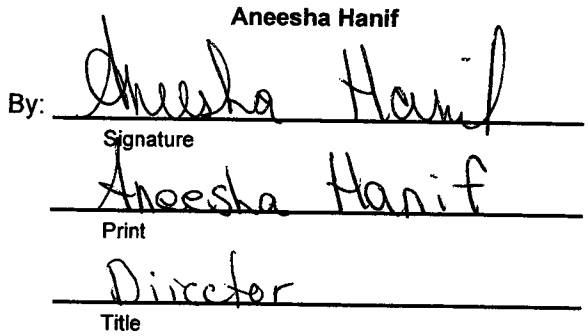 Aneesha Hanif
By: Aneesha Hanif
Signature
Aneesha Hanif
Print
Director
Title